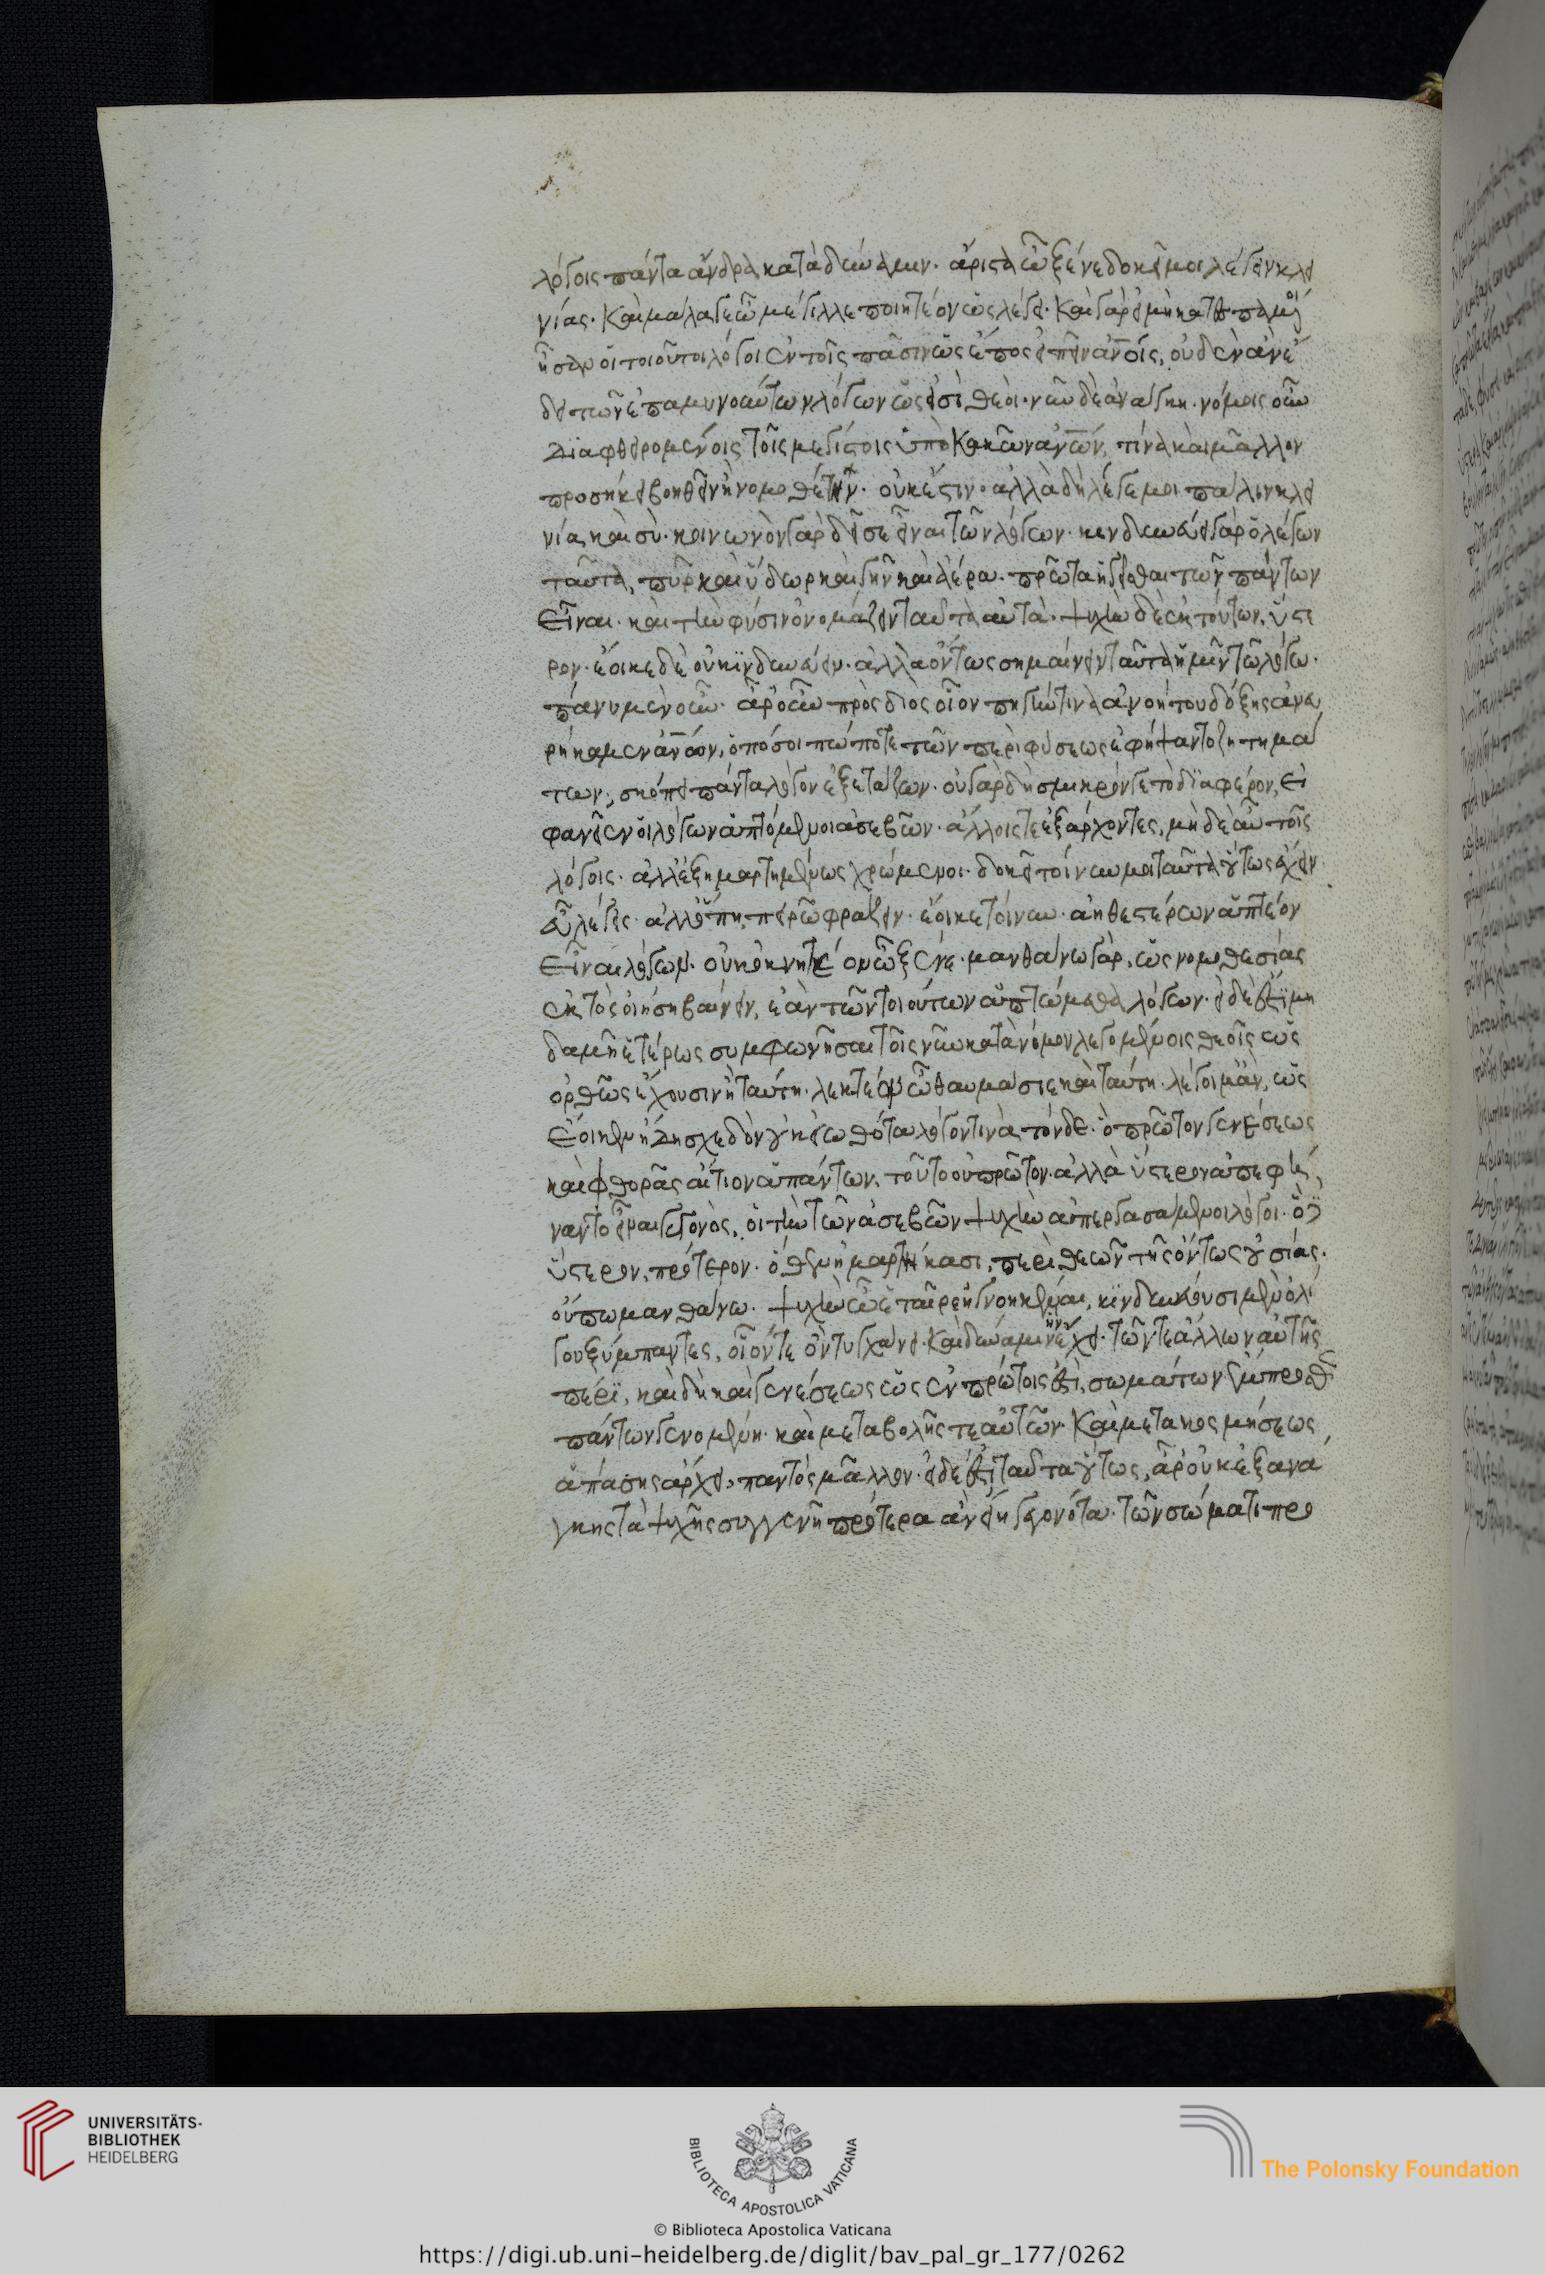 λόγοις πάντα ἄνδρα κατὰ δύναμιν. ἄριστα ὦ ξένε δοκεῖ μοι λέγειν κλει
νίας. Καὶ μάλα γε ὦ μέγιλλε ποιητέον ὡς λέγει. Καὶ γὰρ εἰ μὴ κατεσπαρμένοι
ἦσαν οἱ τοιοῦτοι λόγοι ἐν τοῖς πᾶσιν ὡς ἔπος εἰπεῖν ἀνοις, οὐδὲν ἂν ἔ
δει τῶν ἐπαμυνούντων λόγων ὡς εἰσὶ θεοί. νῦν δὲ ἀνάγκη. νόμοις οὖν
διαφθειρομένοις τοῖς μεγίστοις ὑπὸ Κακῶν ἀνων, τίνα καὶ μᾶλλον
προσήκει βοηθεῖν ἢ νομοθέτην. οὐκ ἔστιν. ἀλλὰ δὴ λέγε μοι πάλιν κλει
νία καὶ σὺ. κοινωνὸν γὰρ δεῖ σε εἶναι τῶν λόγων. κινδυνεύει γὰρ ὁ λέγων
ταῦτα, πῦρ καὶ ὕδωρ καὶ γῆν καὶ ἀέρα. πρῶτα ἡγεῖσθαι τῶν πάντων
Εἶναι. καὶ τὴν φύσιν ὀνομάζειν ταῦτα αὐτὰ. ψυχὴν δὲ ἐκ τούτων, ὕστε
ρον. ἔοικε δὲ οὐ κινδυνεύειν. ἀλλὰ ὄντως σημαίνειν ταῦτα ἡμῖν τῶ λόγω.
πάνυ μὲν οὖν. ἆρ' οὖν πρὸς διὸς οἷον πηγήν τινα ἀνοήτου δόξης ἀνευ
ρήκαμεν ἀνων, ὁπόσοι πώποτε τῶν περὶ φύσεως ἐφήψαντο ζητημά
των; σκόπει πάντα λόγον ἐξετάζων. οὐ γὰρ δὴ σμικρόν γε τὸ διαφέρον, Εἰ
φανεῖεν οἱ λόγων ἁπτόμενοι ἀσεβῶν. ἄλλοις τε ἐξάρχοντες, μὴ δὲ εὖ τοῖς
λόγοις. ἀλλ' ἐξημαρτημένως χρώμενοι. δοκεῖ τοίνυν μοι ταῦτα οὕτως ἔχειν
εὖ λέγεις. ἀλλ' ὅπη, πειρῶ φράζειν. ἔοικε τοίνυν. ἀηθεστέρων ἁπτέον
Εἶναι λόγων. οὐκ ὀκνητέον ὦ ξένε. μανθάνω γὰρ, ὡς νομοθεσίας
ἐκτὸς οἰήση βαίνειν, ἐὰν τῶν τοιούτων ἁπτώμεθα λόγων. εἰ δὲ ἔστι μη
δαμῆ ἑτέρως συμφωνῆσαι τοῖς νῦν κατὰ νόμον λεγομένοις θεοῖς ὡς
ὀρθῶς ἔχουσιν ἢ ταύτη. λεκτέον ὦ θαυμάσιε καὶ ταύτη. λέγοιμ' ἂν, ὡς
Ἔοικεν ἤδη σχεδὸν οὐκ εἰωθότα λόγον τινὰ τόνδε. ὃ πρῶτον γενέσεως
καὶ φθορᾶς αἴτιον ἁπάντων, τοῦτο οὐ πρῶτον. ἀλλὰ ὕστερον ἀπεφή
ναντο εἶναι γεγονὸς, οἱ τὴν τῶν ἀσεβῶν ψυχὴν ἀπεργασάμενοι λόγοι. ὃ δὲ
ὕστερον, πρότερον. ὅθεν ἡμαρτήκασι, περὶ θεῶν τῆς ὄντως οὐσίας.
οὔπω μανθάνω. ψυχὴν ὦ ἑταῖρε ἠγνοηκέναι, κινδυνεύουσι μὲν ὀλί
γου ξύμπαντες, οἷόν τε ὂν τυγχάνει. Καὶ δύναμιν ἣν ἔχει. τῶν τε ἄλλων αὐτῆς
πέρι, καὶ δὴ καὶ γενέσεως ὡς ἐν πρώτοις ἐστὶ, σωμάτων ἔμπροσθεν
πάντων γενομένη. καὶ μεταβολῆς τε αὐτῶν. Καὶ μετακοσμήσεως
ἁπάσης ἄρχει, παντὸς μᾶλλον. εἰ δέ ἐστι ταῦτα οὕτως, ἆρ' οὐκ ἐξ ἀνά
γκης τὰ ψυχῆς συγγενῆ πρότερα ἂν εἴη γεγονότα. τῶν σώματι προ
UNIVERSITÄTS-
BIBLIOTHEK
HEIDELBERG
BIBLIOTECA APOSTOLICA VATICANA
The Polonsky Foundation
© Biblioteca Apostolica Vaticana
https://digi.ub.uni-heidelberg.de/diglit/bav_pal_gr_177/0262